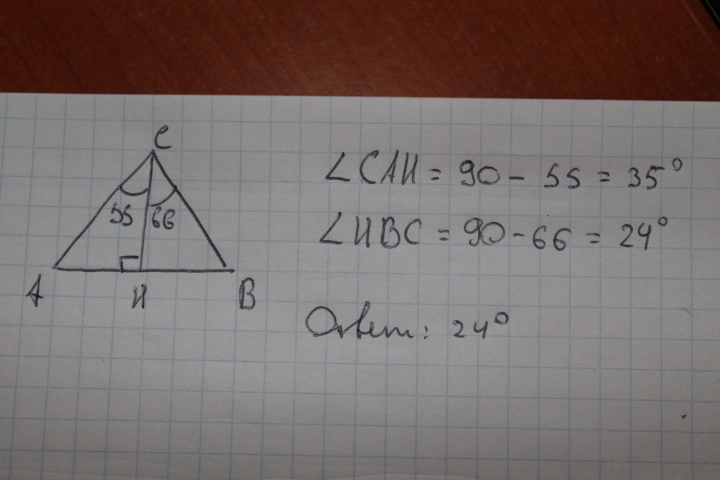 C
55 66
A H B
∠CAH = 90 - 55 = 35°
∠HBC = 90 - 66 = 24°
Ответ: 24°